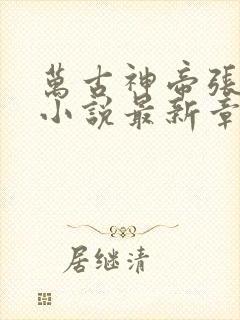 萬古神帝張
小說最新章
居继清